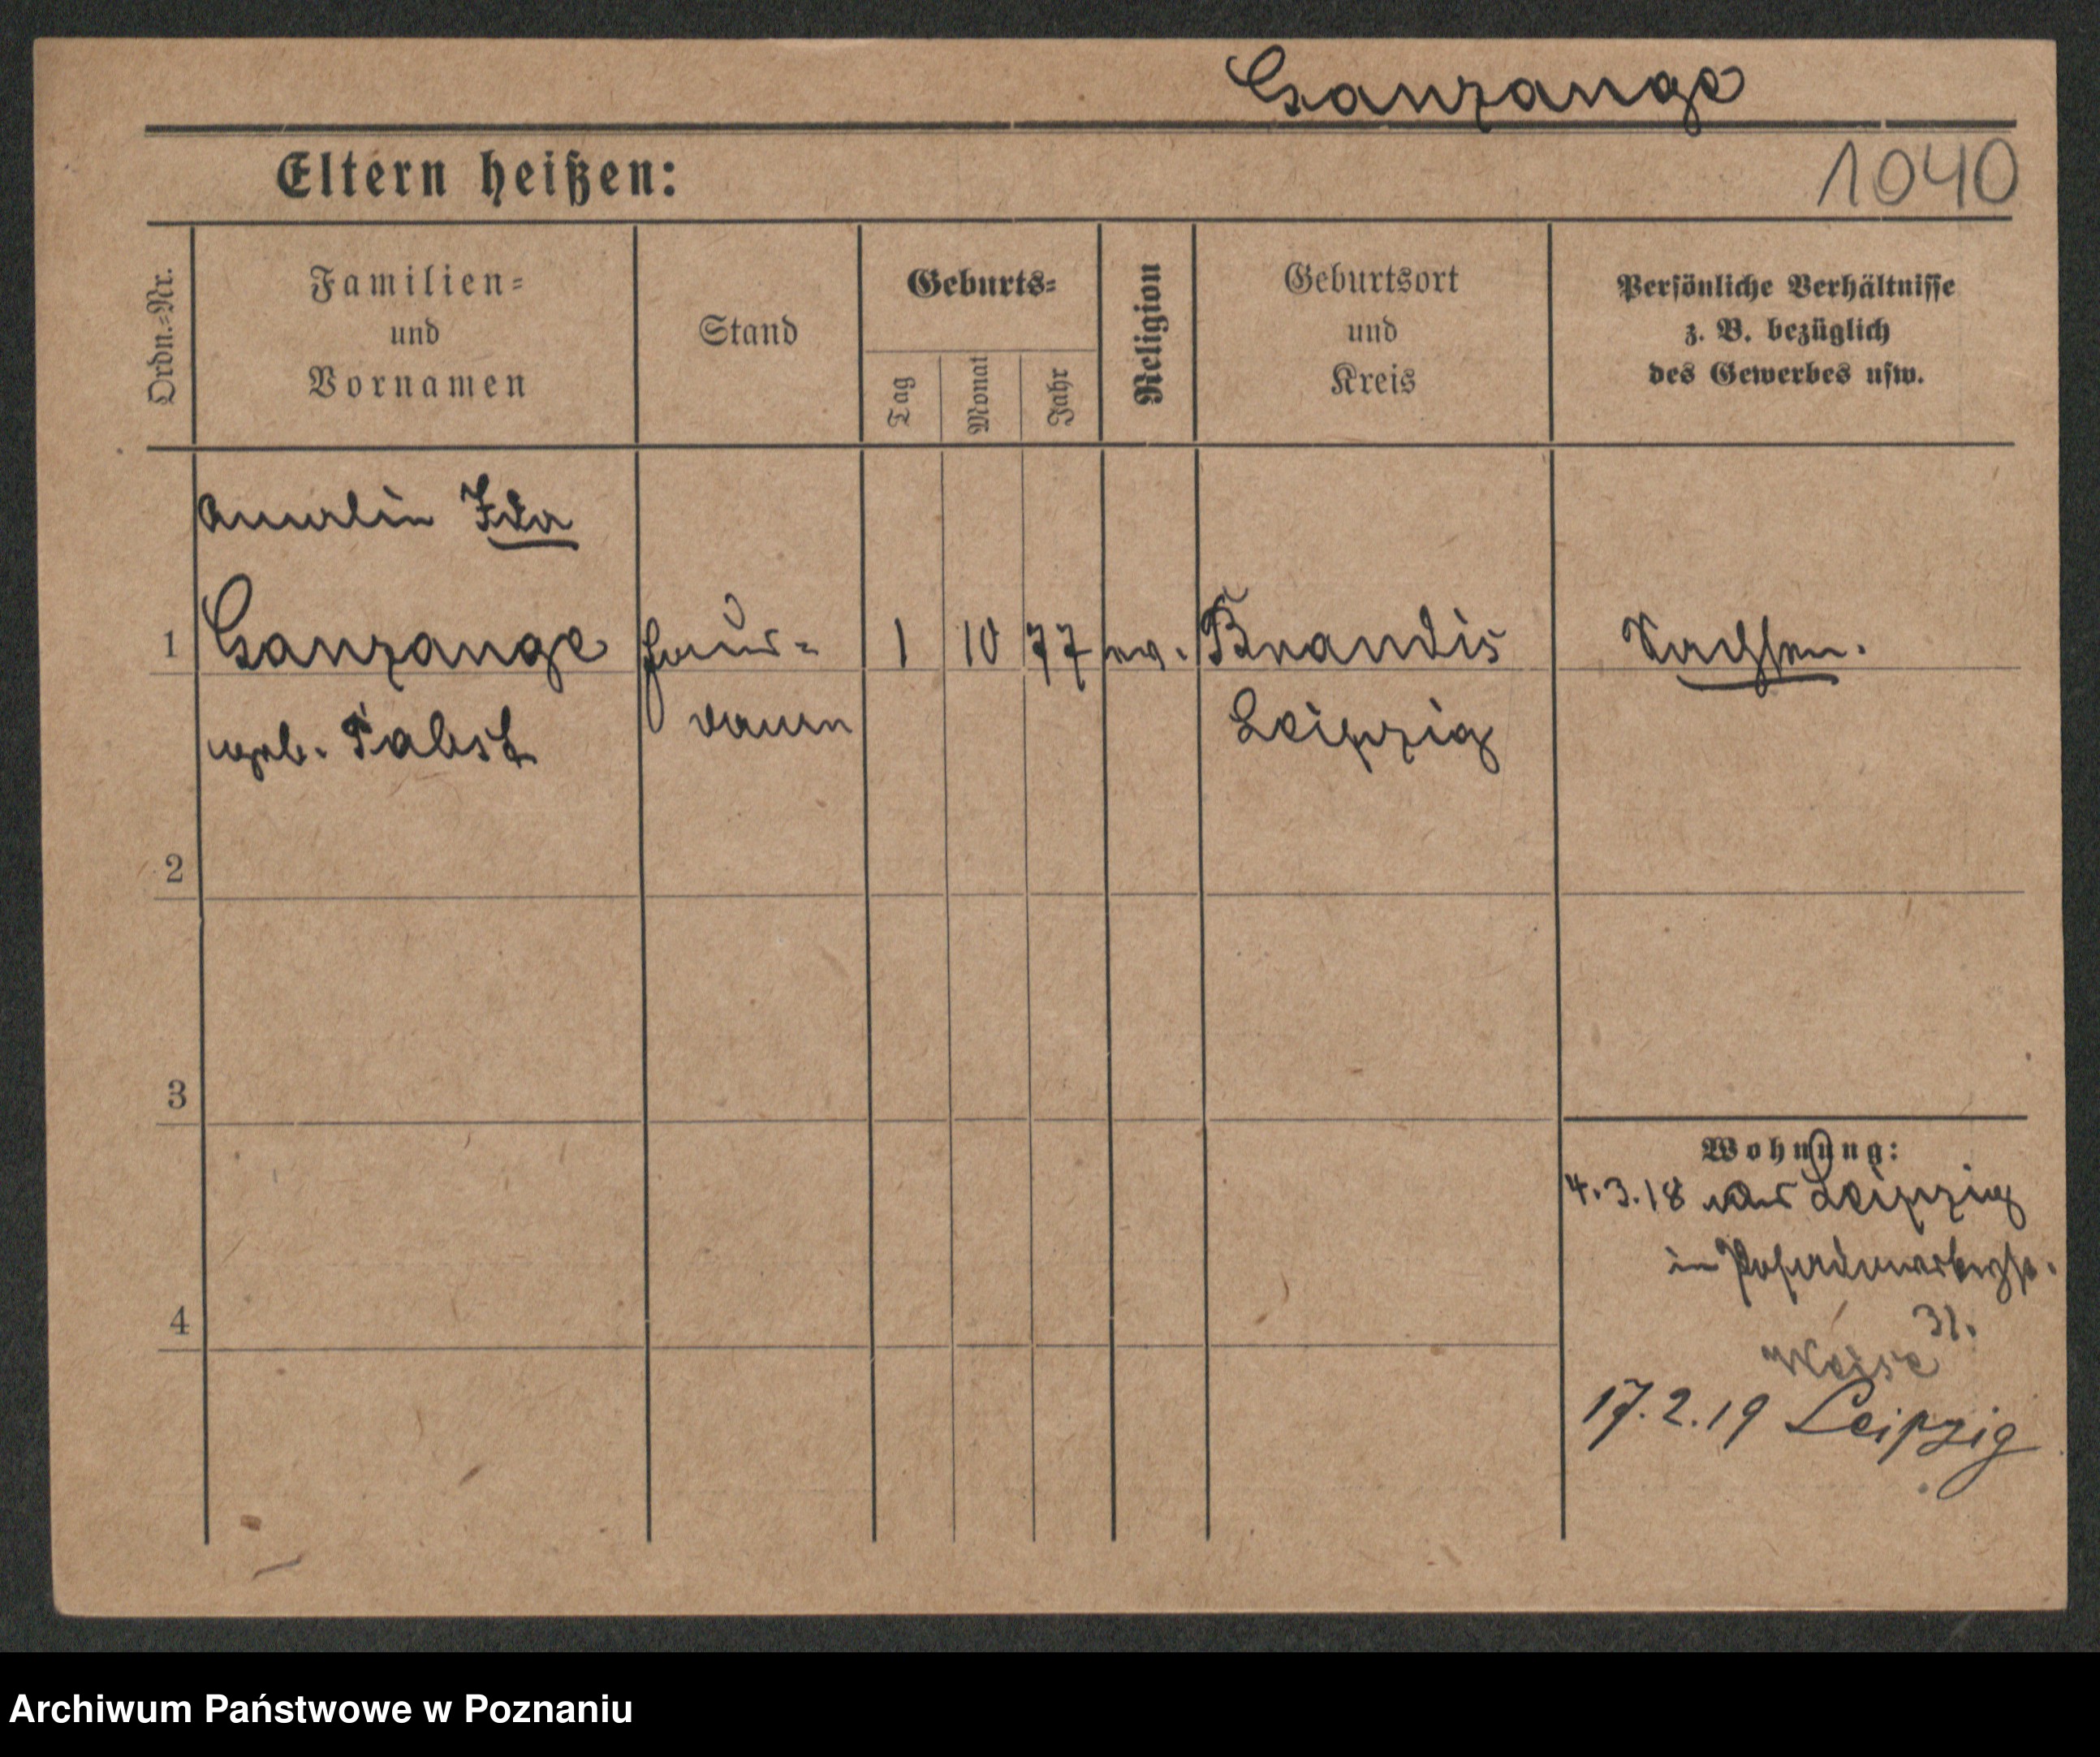 Ganzauge
Eltern heißen:
1040
Ordn.-Nr.
Familien-
und
Vornamen
Stand
Geburts-
Tag
Monat
Jahr
Religion
Geburtsort
und
Kreis
Persönliche Verhältnisse
z. B. bezüglich
des Gewerbes usw.
Amalie Ida
1 Ganzauge 1 10 77 ev. Brandis Sachsen.
geb. Pabst Leipzig
2
3
Wohnung:
4.3.18 aus Leipzig
in
4
31.
Weise
17.2.19 Leipzig
Archiwum Państwowe w Poznaniu